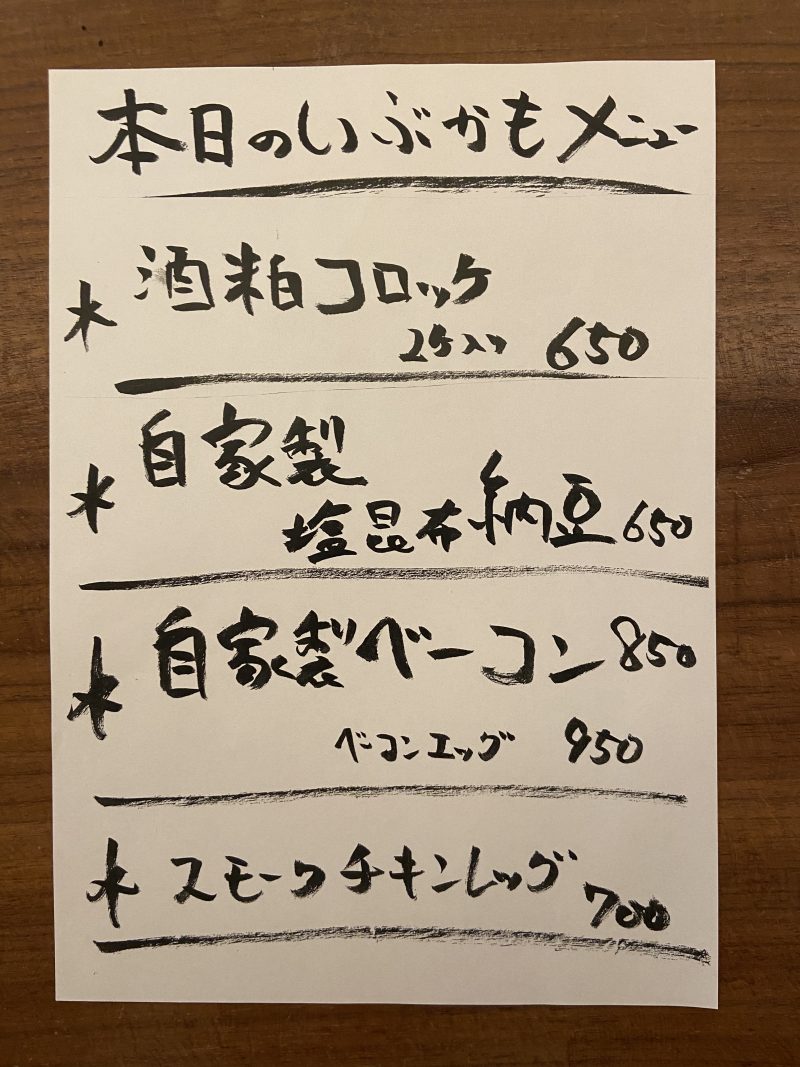 本日のいぶかもメニュー
* 酒粕コロッケ
2ケ入り 650
* 自家製
塩昆布納豆 650
* 自家製ベーコン 850
ベーコンエッグ 950
* スモークチキンレッグ
700